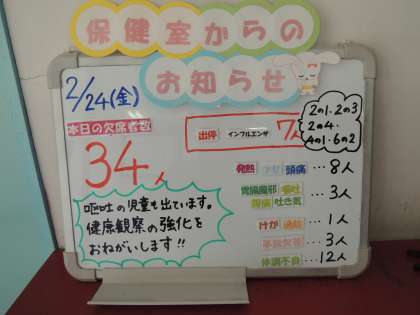 保健室からの
お知らせ
2/24(金)
本日の欠席者数
34人
嘔吐の児童も出ています。
健康観察の強化を
おねがいします!!
出停 インフルエンザ 7人
2の1.2の3
2の4.
4の1.6の2
発熱 頭痛 …8人
胃腸風邪 嘔吐
腹痛 吐き気 …3人
けが 通院 …1人
事故欠席 …3人
体調不良 …12人